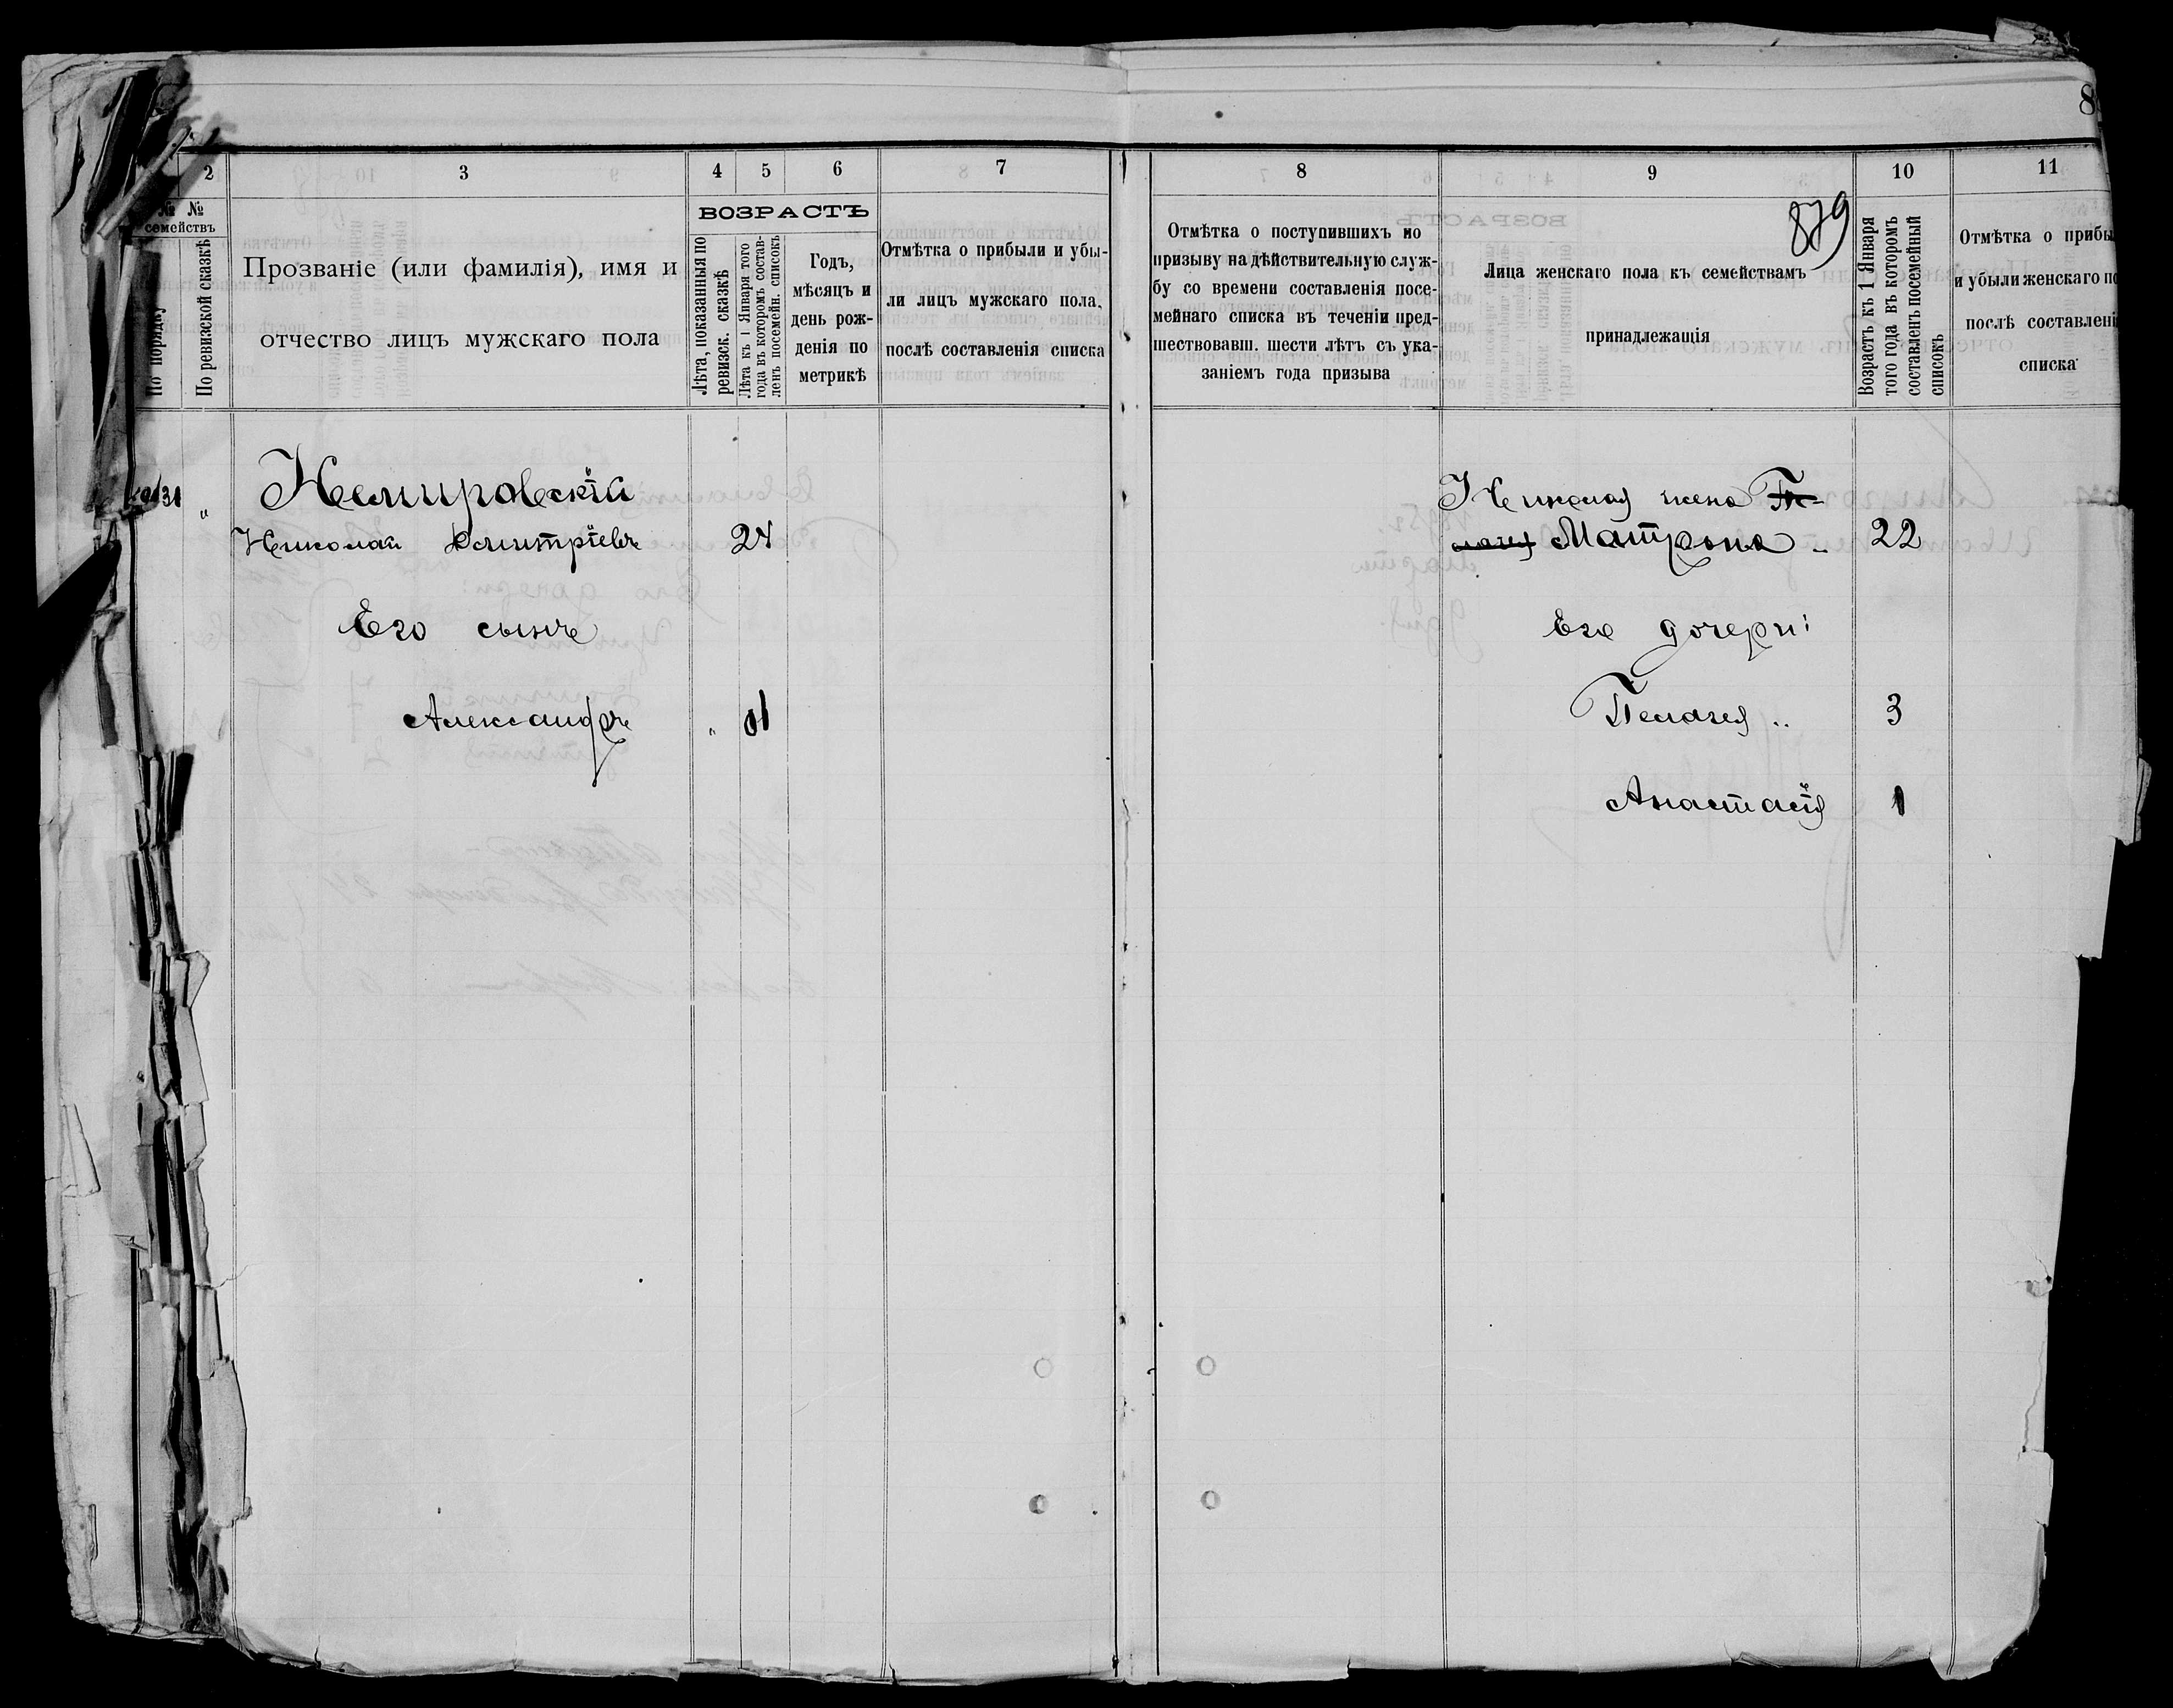 8
2
3
4
5
6
7
8
9
10
11
№ №
семействъ
По порядку
По ревизской сказкѣ
Прозваніе (или фамилія), имя и
отчество лицъ мужскаго пола
ВОЗРАСТЪ
Лѣта, показанныя по
ревизск. сказкѣ
Лѣта къ 1 Января того
года въ которомъ состав-
ленъ посемейн. списокъ
Годъ,
мѣсяцъ и
день рож-
денія по
метрикѣ
Отмѣтка о прибыли и убы-
ли лицъ мужскаго пола,
послѣ составленія списка
Отмѣтка о поступившихъ по
призыву на дѣйствительную служ-
бу со времени составленія посе-
мейнаго списка въ теченіи пред-
шествовавш. шести лѣтъ съ ука-
заніемъ года призыва
879
Лица женскаго пола къ семействамъ
принадлежащія
Возрастъ къ 1 Января
того года въ которомъ
составленъ посемейный
списокъ
Отмѣтка о прибы
и убыли женскаго по
послѣ составлені
списка
31 „ Немировскій
Николай Дмитріевъ 24
Его сынъ
Александръ „ 1
Николая жена Пе-
лагея Матрона „ 22
Его дочери:
Пелагея „ 3
Анастасія 1